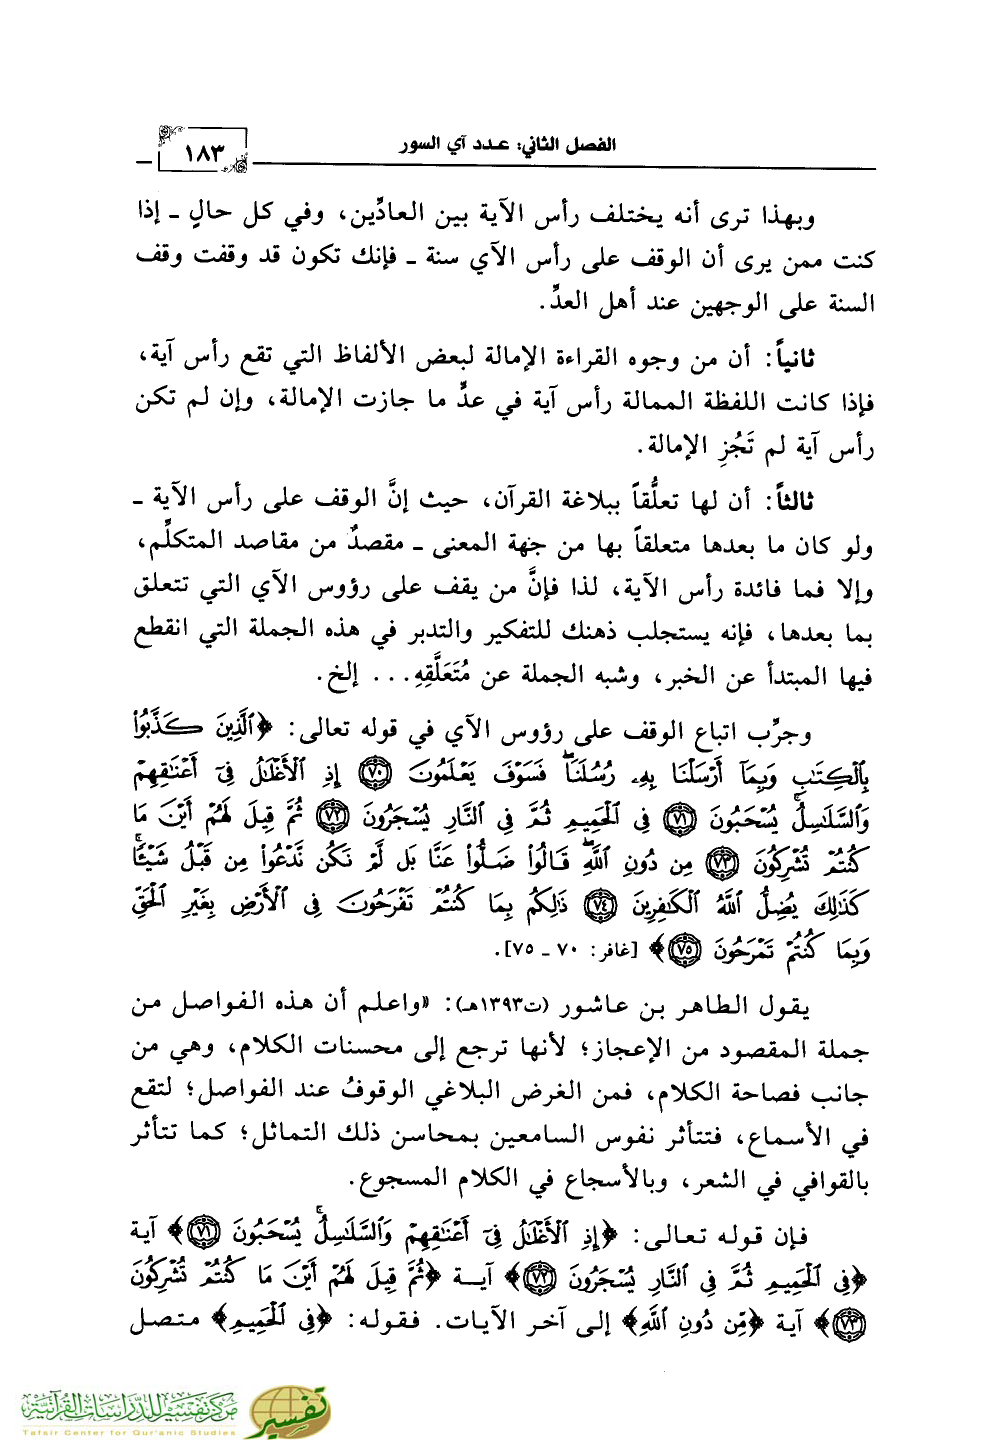 الفصل الثاني: عدد آي السور
١٨٣
وبهذا ترى أنه يختلف رأس الآية بين العادِّين، وفي كل حالٍ ـ إذا
كنت ممن يرى أن الوقف على رأس الآي سنة ـ فإنك تكون قد وقفت وقف
السنة على الوجهين عند أهل العدِّ.
ثانياً: أن من وجوه القراءة الإمالة لبعض الألفاظ التي تقع رأس آية،
فإذا كانت اللفظة الممالة رأس آية في عدٍّ ما جازت الإمالة، وإن لم تكن
رأس آية لم تَجُزِ الإمالة.
ثالثاً: أن لها تعلُّقاً ببلاغة القرآن، حيث إنَّ الوقف على رأس الآية ـ
ولو كان ما بعدها متعلقاً بها من جهة المعنى ـ مقصدٌ من مقاصد المتكلِّم،
وإلا فما فائدة رأس الآية، لذا فإنَّ من يقف على رؤوس الآي التي تتعلق
بما بعدها، فإنه يستجلب ذهنك للتفكير والتدبر في هذه الجملة التي انقطع
فيها المبتدأ عن الخبر، وشبه الجملة عن مُتَعَلَّقِهِ... إلخ.
وجرِّب اتباع الوقف على رؤوس الآي في قوله تعالى: ﴿ٱلَّذِينَ كَذَّبُوا۟
بِٱلْكِتَٰبِ وَبِمَآ أَرْسَلْنَا بِهِۦ رُسُلَنَا ۖ فَسَوْفَ يَعْلَمُونَ ٧٠ إِذِ ٱلْأَغْلَٰلُ فِىٓ أَعْنَٰقِهِمْ
وَٱلسَّلَٰسِلُ يُسْحَبُونَ ٧١ فِى ٱلْحَمِيمِ ثُمَّ فِى ٱلنَّارِ يُسْجَرُونَ ٧٢ ثُمَّ قِيلَ لَهُمْ أَيْنَ مَا
كُنتُمْ تُشْرِكُونَ ٧٣ مِن دُونِ ٱللَّهِ ۖ قَالُوا۟ ضَلُّوا۟ عَنَّا بَل لَّمْ نَكُن نَّدْعُوا۟ مِن قَبْلُ شَيْـًٔا ۚ
كَذَٰلِكَ يُضِلُّ ٱللَّهُ ٱلْكَٰفِرِينَ ٧٤ ذَٰلِكُم بِمَا كُنتُمْ تَفْرَحُونَ فِى ٱلْأَرْضِ بِغَيْرِ ٱلْحَقِّ
وَبِمَا كُنتُمْ تَمْرَحُونَ ٧٥﴾ [غافر: ٧٠ ـ ٧٥].
يقول الطاهر بن عاشور (ت١٣٩٣هـ): «واعلم أن هذه الفواصل من
جملة المقصود من الإعجاز؛ لأنها ترجع إلى محسنات الكلام، وهي من
جانب فصاحة الكلام، فمن الغرض البلاغي الوقوفُ عند الفواصل؛ لتقع
في الأسماع، فتتأثر نفوس السامعين بمحاسن ذلك التماثل؛ كما تتأثر
بالقوافي في الشعر، وبالأسجاع في الكلام المسجوع.
فإن قوله تعالى: ﴿إِذِ ٱلْأَغْلَٰلُ فِىٓ أَعْنَٰقِهِمْ وَٱلسَّلَٰسِلُ يُسْحَبُونَ ٧١﴾ آية
﴿فِى ٱلْحَمِيمِ ثُمَّ فِى ٱلنَّارِ يُسْجَرُونَ ٧٢﴾ آيـة ﴿ثُمَّ قِيلَ لَهُمْ أَيْنَ مَا كُنتُمْ تُشْرِكُونَ
٧٣﴾ آية ﴿مِن دُونِ ٱللَّهِ﴾ إلى آخر الآيات. فقوله: ﴿فِى ٱلْحَمِيمِ﴾ متصل
مركز تفسير للدراسات القرآنية
Tafsir Center for Qur'anic Studies
تفسير